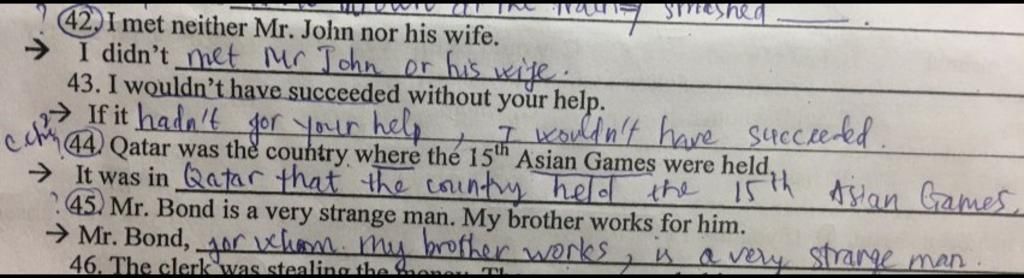 smashed .
42. I met neither Mr. John nor his wife.
→ I didn't met Mr John or his wife.
43. I wouldn't have succeeded without your help.
→ If it hadn't for your help, I wouldn't have succeeded.
44. Qatar was the country where the 15th Asian Games were held.
→ It was in Qatar that the country held the 15th Asian Games.
? 45. Mr. Bond is a very strange man. My brother works for him.
→ Mr. Bond, for whom my brother works, is a very strange man.
46. The clerk was stealing the money